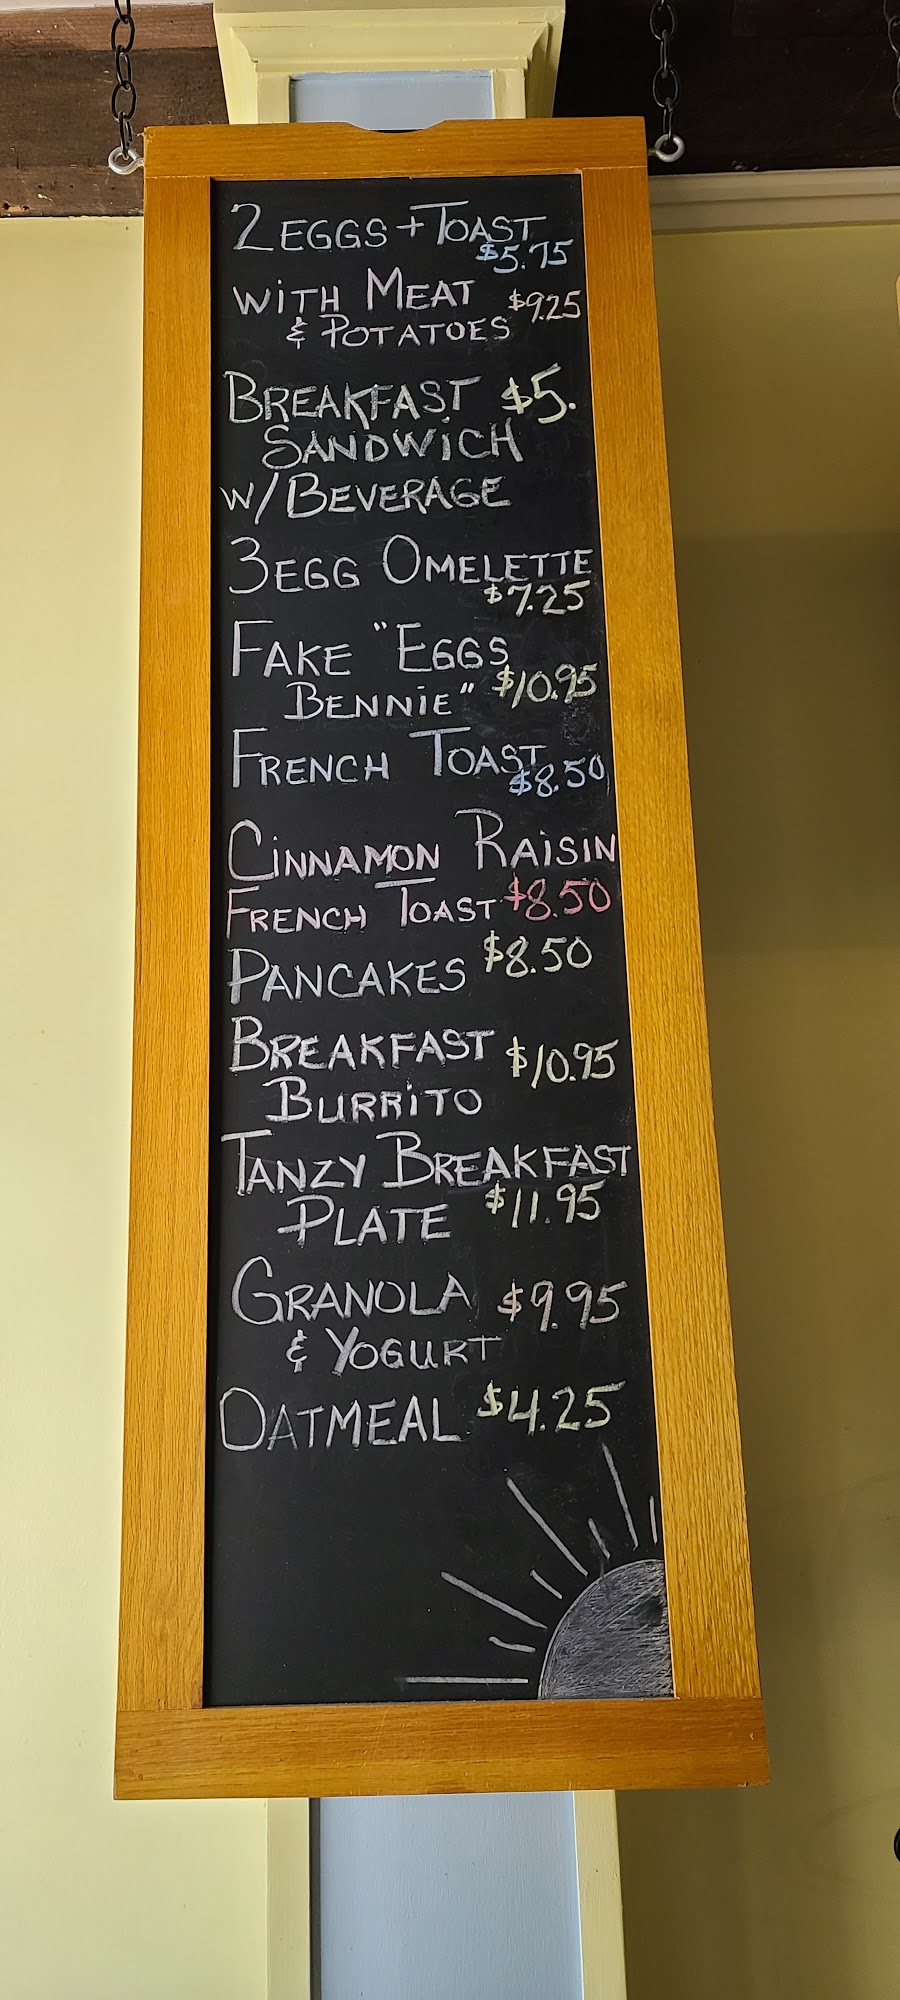 2 EGGS + TOAST
$5.75
WITH MEAT $9.25
& POTATOES
BREAKFAST $5.
SANDWICH
W/ BEVERAGE
3 EGG OMELETTE
$7.25
FAKE "EGGS
BENNIE" $10.95
FRENCH TOAST
$8.50
CINNAMON RAISIN
FRENCH TOAST $8.50
PANCAKES $8.50
BREAKFAST $10.95
BURRITO
TANZY BREAKFAST
PLATE $11.95
GRANOLA $9.95
& YOGURT
OATMEAL $4.25